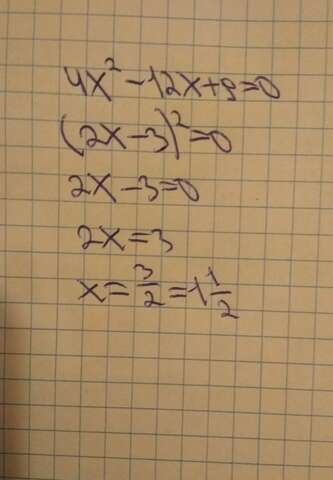 4x² - 12x + 9 = 0
(2x - 3)² = 0
2x - 3 = 0
2x = 3
x = 3/2 = 1 1/2